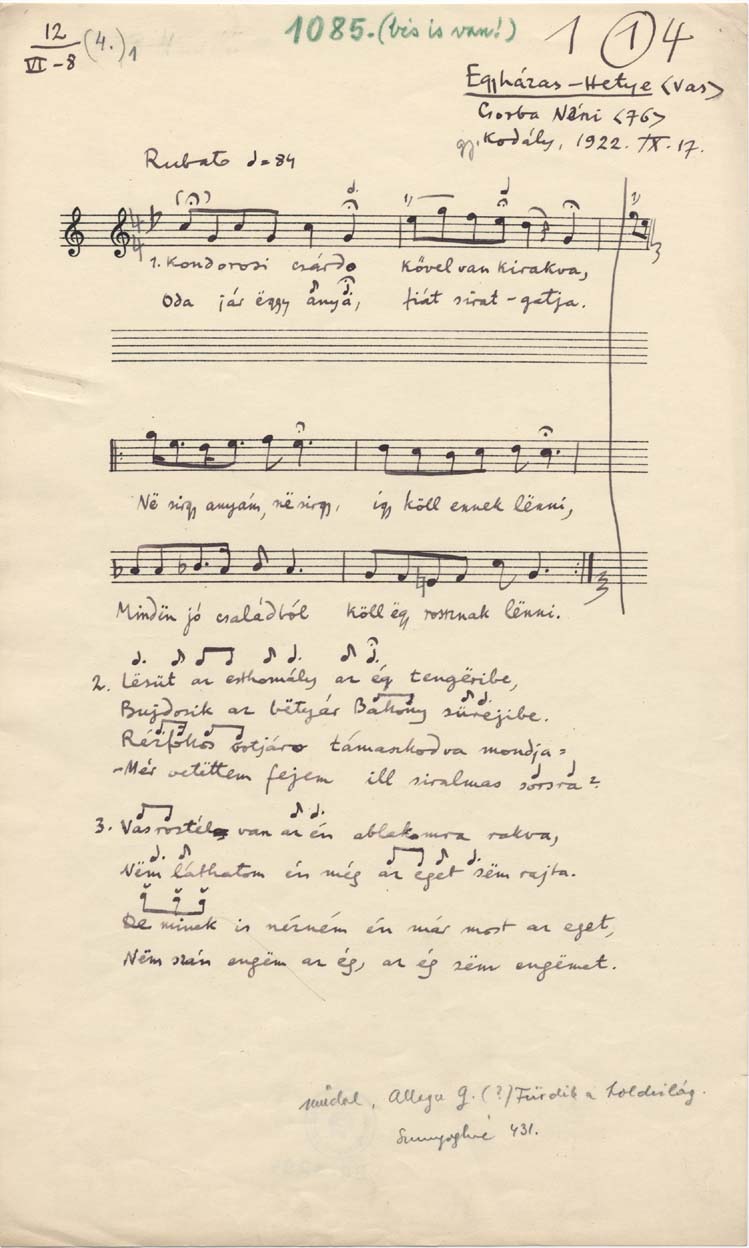 12
VI-8 (4.)1
1085. (bis is van!)
1 1 4
Egyházas-Hetye <Vas>
Csorba Néni <76>
gy. Kodály, 1922. IX. 17.
Rubato = 84
1. Kondorosi csárda kővel van kirakva,
Oda jár ëggy anyá, fiát sirat-gatja.
Në sirj anyám, në sirj, így köll ennek lënni,
Mindën jó családból köll ëgy rossznak lënni.
2. Lësüt az esthomály az ég tengëribe,
Bujdosik az bëtyár Bakony sürejibe.
Rézfokos botjára támaszkodva mondja:
-Mér vetëttem fejem ill siralmas sorsra?
3. Vasrostél van az én ablakomra rakva,
Nëm láthatom én még az eget sëm rajta.
De minek is nézném én már most az eget,
Nëm szán engëm az ég, az ég sëm engëmet.
műdal, Allaga G. (?) Fürdik a holdvilág.
431.